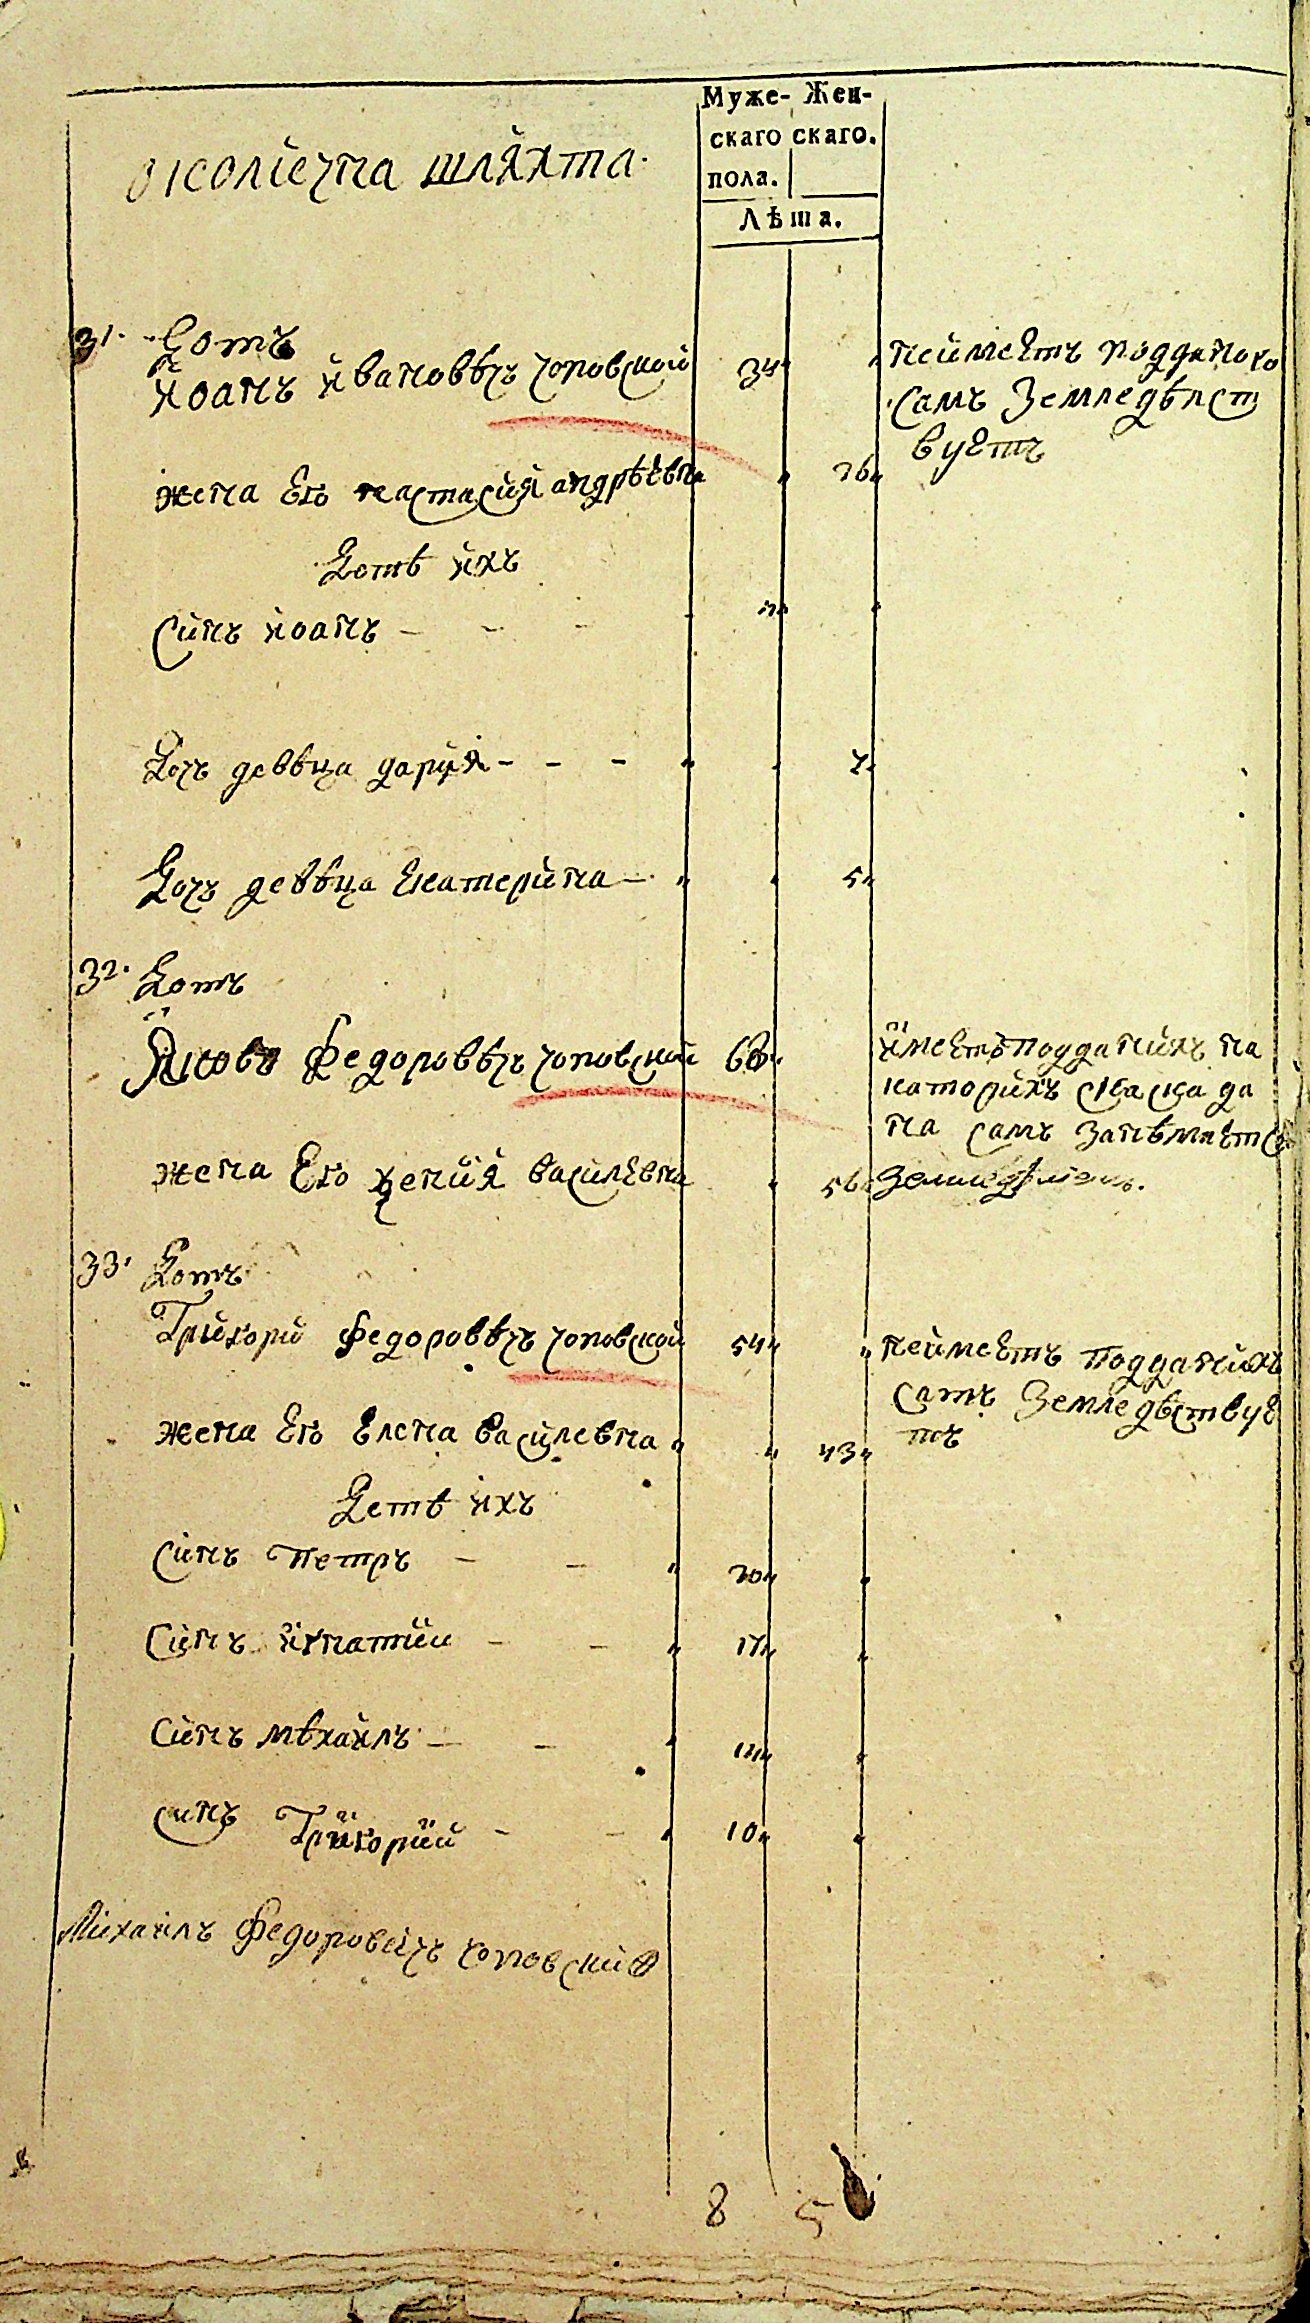 Муже- Жен-
скаго скаго.
пола.
Лѣта.
околична шляхта.
31. Домъ
Иоанъ Ивановѣчъ Чоповской 34 неимеетъ подданого
самъ Земледѣлст
вуетъ
жена Его настасия андрѣевна 26
Детѣ ихъ
Синъ иоанъ
Дочъ девѣца дария 7
Дочъ девѣца Екатерина 5
32. Домъ
Яковъ Федоровѣчъ Чоповской имеетъ подданихъ на
каторихъ сказка да
на самъ
жена Его Ксения василевна 56
33. Домъ
Григори федоровѣчъ Чоповской 54 неимеетъ подданихъ
самъ Земледѣствуе
тъ
жена Его Елена василевна 43
Детѣ ихъ
Синъ Петръ 20
Синъ игнатии 17
Синъ мѣхаилъ 14
Синъ Григории 10
Михаилъ Федоровичъ Чоповский
8 5